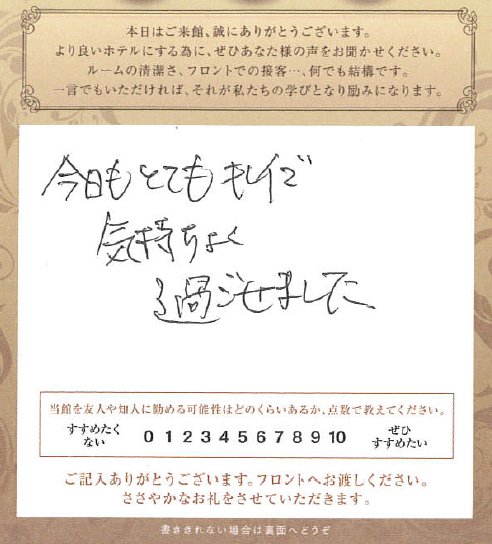 本日はご来館、誠にありがとうございます。
より良いホテルにする為に、ぜひあなた様の声をお聞かせください。
ルームの清潔さ、フロントでの接客…、何でも結構です。
一言でもいただければ、それが私たちの学びとなり励みになります。
今日もとてもキレイで
気持ちよく
過ごせました。
当館を友人や知人に勧める可能性はどのくらいあるか、点数で教えてください。
すすめたく
ない
0 1 2 3 4 5 6 7 8 9 10
ぜひ
すすめたい
ご記入ありがとうございます。フロントへお渡しください。
ささやかなお礼をさせていただきます。
書ききれない場合は裏面へどうぞ